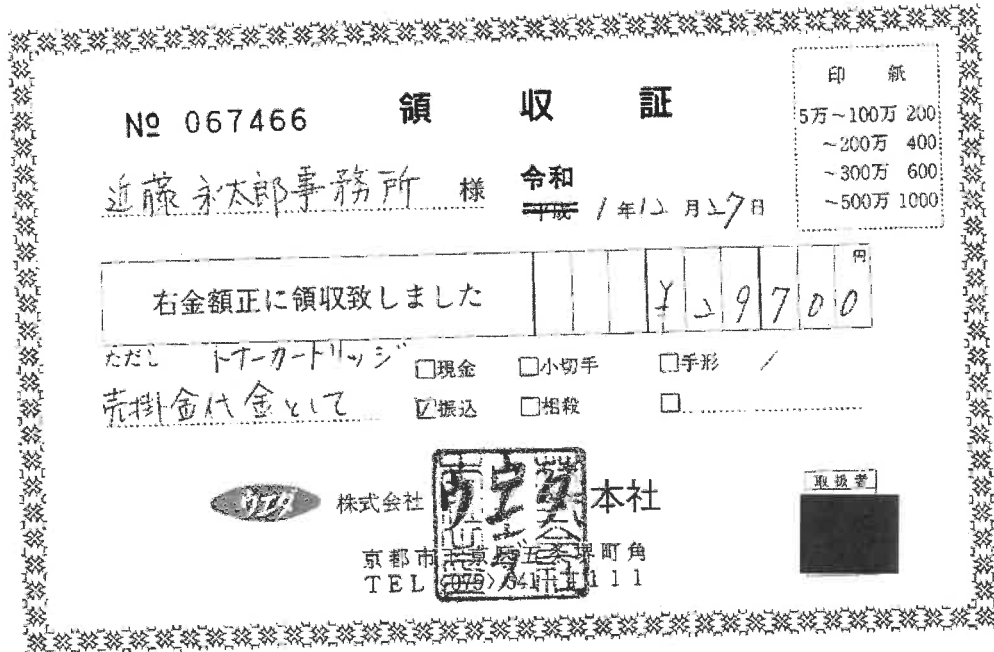 印 紙
5万～100万 200
～200万 400
～300万 600
～500万 1000
№ 067466 領収証
近藤永太郎事務所 様
令和
平成 1年12月27日
右金額正に領収致しました ¥29700 円
ただし トナーカートリッジ
売掛金代金として
□現金 □小切手 □手形
☑振込 □相殺 □
取扱者
ウエダ 株式会社 ウエダ 本社
京都市 五条堺町角
TEL 1111